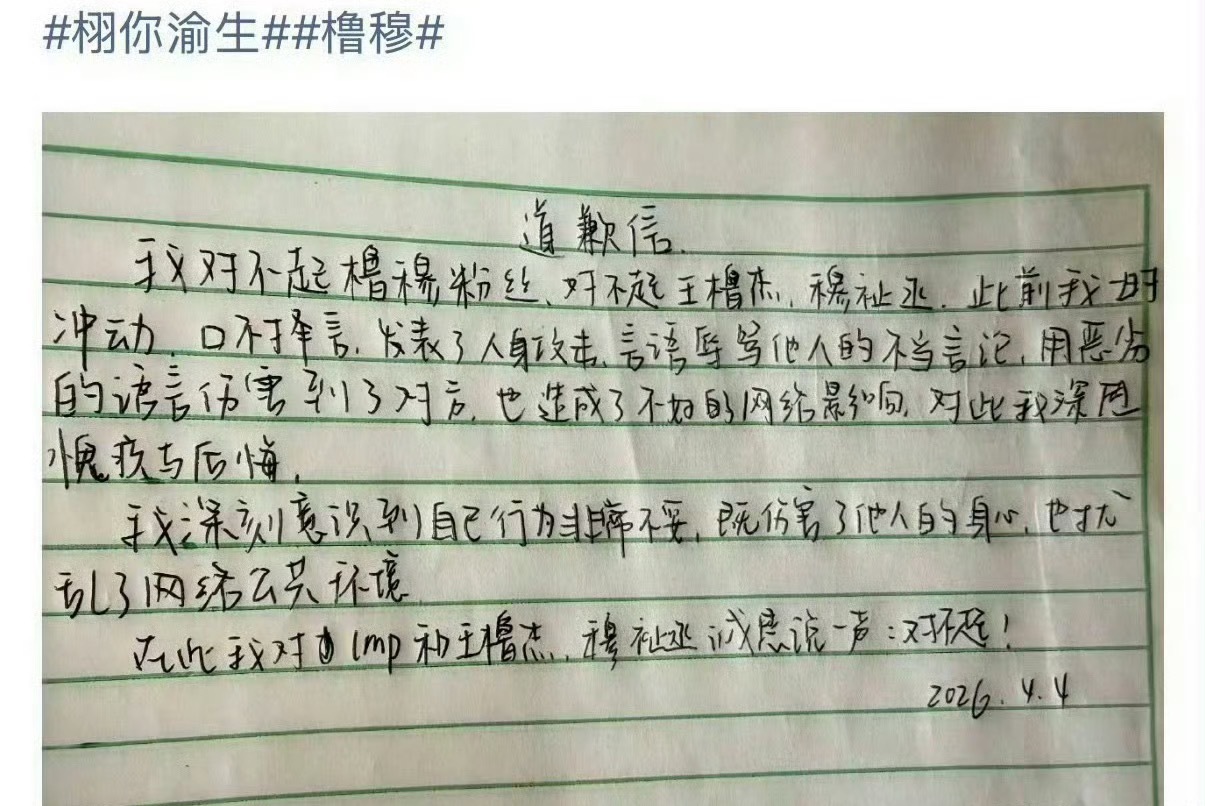 #栩你渝生##橹穆#
道歉信.
我对不起橹穆粉丝、对不起王橹杰、穆祉丞.此前我一时
冲动、口不择言,发表了人身攻击、言语辱骂他人的不当言论,用恶劣
的语言伤害到了对方,也造成了不好的网络影响,对此我深感
愧疚与后悔.
我深刻意识到自己行为非常不妥,既伤害了他人的身心,也扰
乱了网络公共环境.
在此我对 lmp 和王橹杰、穆祉丞诚恳说一声:对不起!
2026.4.4